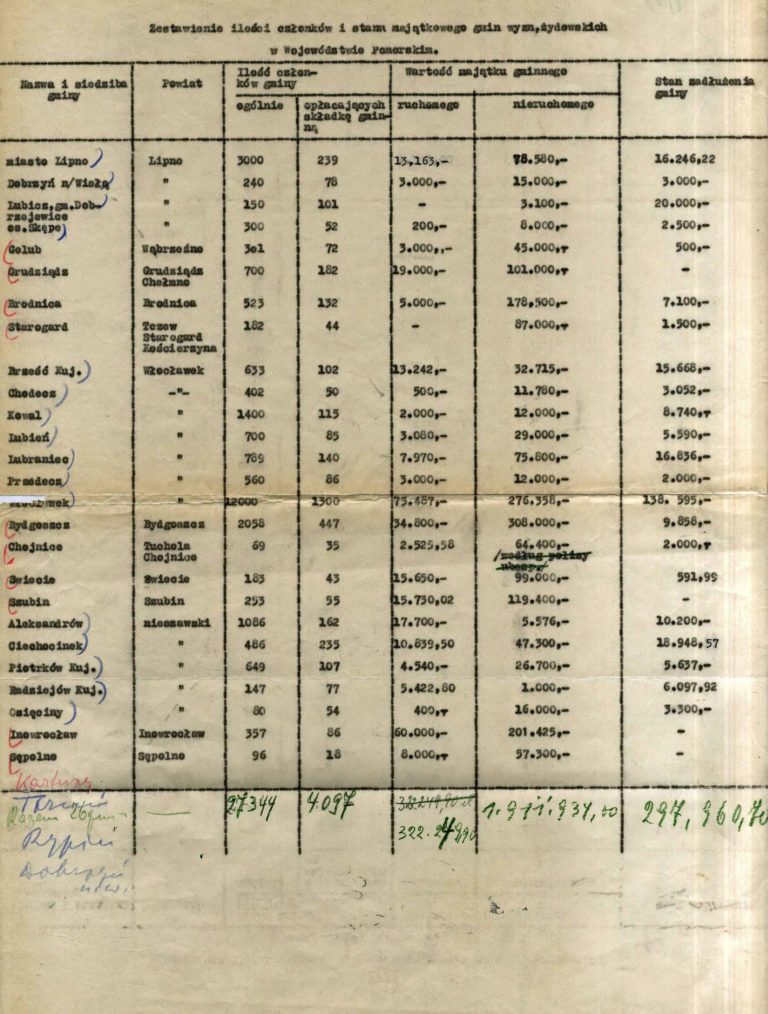 Zestawienie ilości członków i stanu majątkowego gmin wyzn.żydowskich
w Województwie Pomorskim.
Nazwa i siedziba gminy Powiat Ilość członków gminy Wartość majątku gminnego Stan zadłużenia gminy
ogólnie opłacających składkę gminną ruchomego nieruchomego
miasto Lipno) Lipno 3000 239 13.163,- 78.580,- 16.246,22
Dobrzyń n/Wisłą) " 240 78 3.000,- 15.000,- 3.000,-
Lubicz,gm.Dob- " 150 101 - 3.100,- 20.000,-
rzejewice
os.Skępe) " 300 52 200,- 8.000,- 2.500,-
Golub Wąbrzeźno 301 72 3.000,,- 45.000,- 500,-
Grudziądz Grudziądz 700 182 19.000,- 101.000,- -
Chełmno
Brodnica Brodnica 523 132 5.000,- 178,500,- 7.100,-
Starogard Tczew 182 44 - 87.000,- 1.500,-
Starogard
Kościerzyna
Brześć Kuj.) Włocławek 633 102 13.242,- 32.715,- 15.668,-
Chodecz) -"- 402 50 500,- 11.780,- 3.052,-
Kowal) " 1400 115 2.000,- 12.000,- 8.740,-
Lubień) " 700 85 3.080,- 29.000,- 5.590,-
Lubraniec) " 789 140 7.970,- 75.800,- 16.836,-
Przedecz) " 560 86 3.000,- 12.000,- 2.000,-
Włocławek " 12000 1300 75.487,- 276.358,- 138. 595,-
Bydgoszcz Bydgoszcz 2058 447 34.800,- 308.000,- 9.858,-
Chojnice Tuchola 69 35 2.525,58 64.400,- 2.000,-
Chojnice /według polisy
ubezp./
Świecie Świecie 183 43 15.650,- 99.000,- 591,99
Szubin Szubin 253 55 15.730,02 119.400,- -
Aleksandrów) nieszawski 1086 162 17.700,- 5.576,- 10.200,-
Ciechocinek) " 486 235 10.839,50 47.300,- 18.948,57
Piotrków Kuj.) " 649 107 4.540,- 26.700,- 5.637,-
Radziejów Kuj.) " 147 77 5.422,80 1.000,- 6.097,92
Osięciny) " 80 54 400,- 16.000,- 3.300,-
Inowrocław Inowrocław 357 86 60.000,- 201.425,- -
Sępolno Sępolno 96 18 8.000,- 57.300,- -
Kartuzy
27344 4.097 322.249,90 1.911.934,00 297,960,70
Razem 26 gmin 322.249,90
Rypin
Dobrzyń